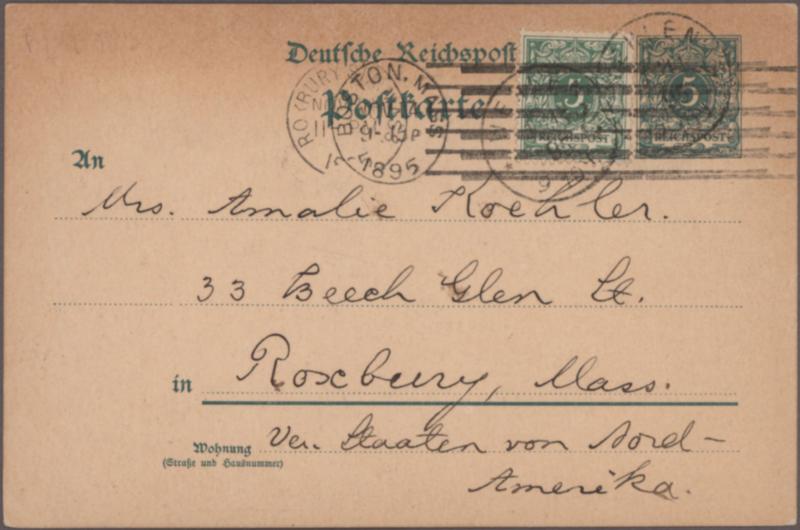 Deutsche Reichspost
Postkarte
BOSTON, MASS
1895
5
REICHSPOST
5
REICHSPOST
An
Mrs. Amalie Koehler.
33 Beech Glen St.
in Roxbury, Mass.
Wohnung
(Straße und Hausnummer)
Ver. Staaten von Nord-
Amerika.